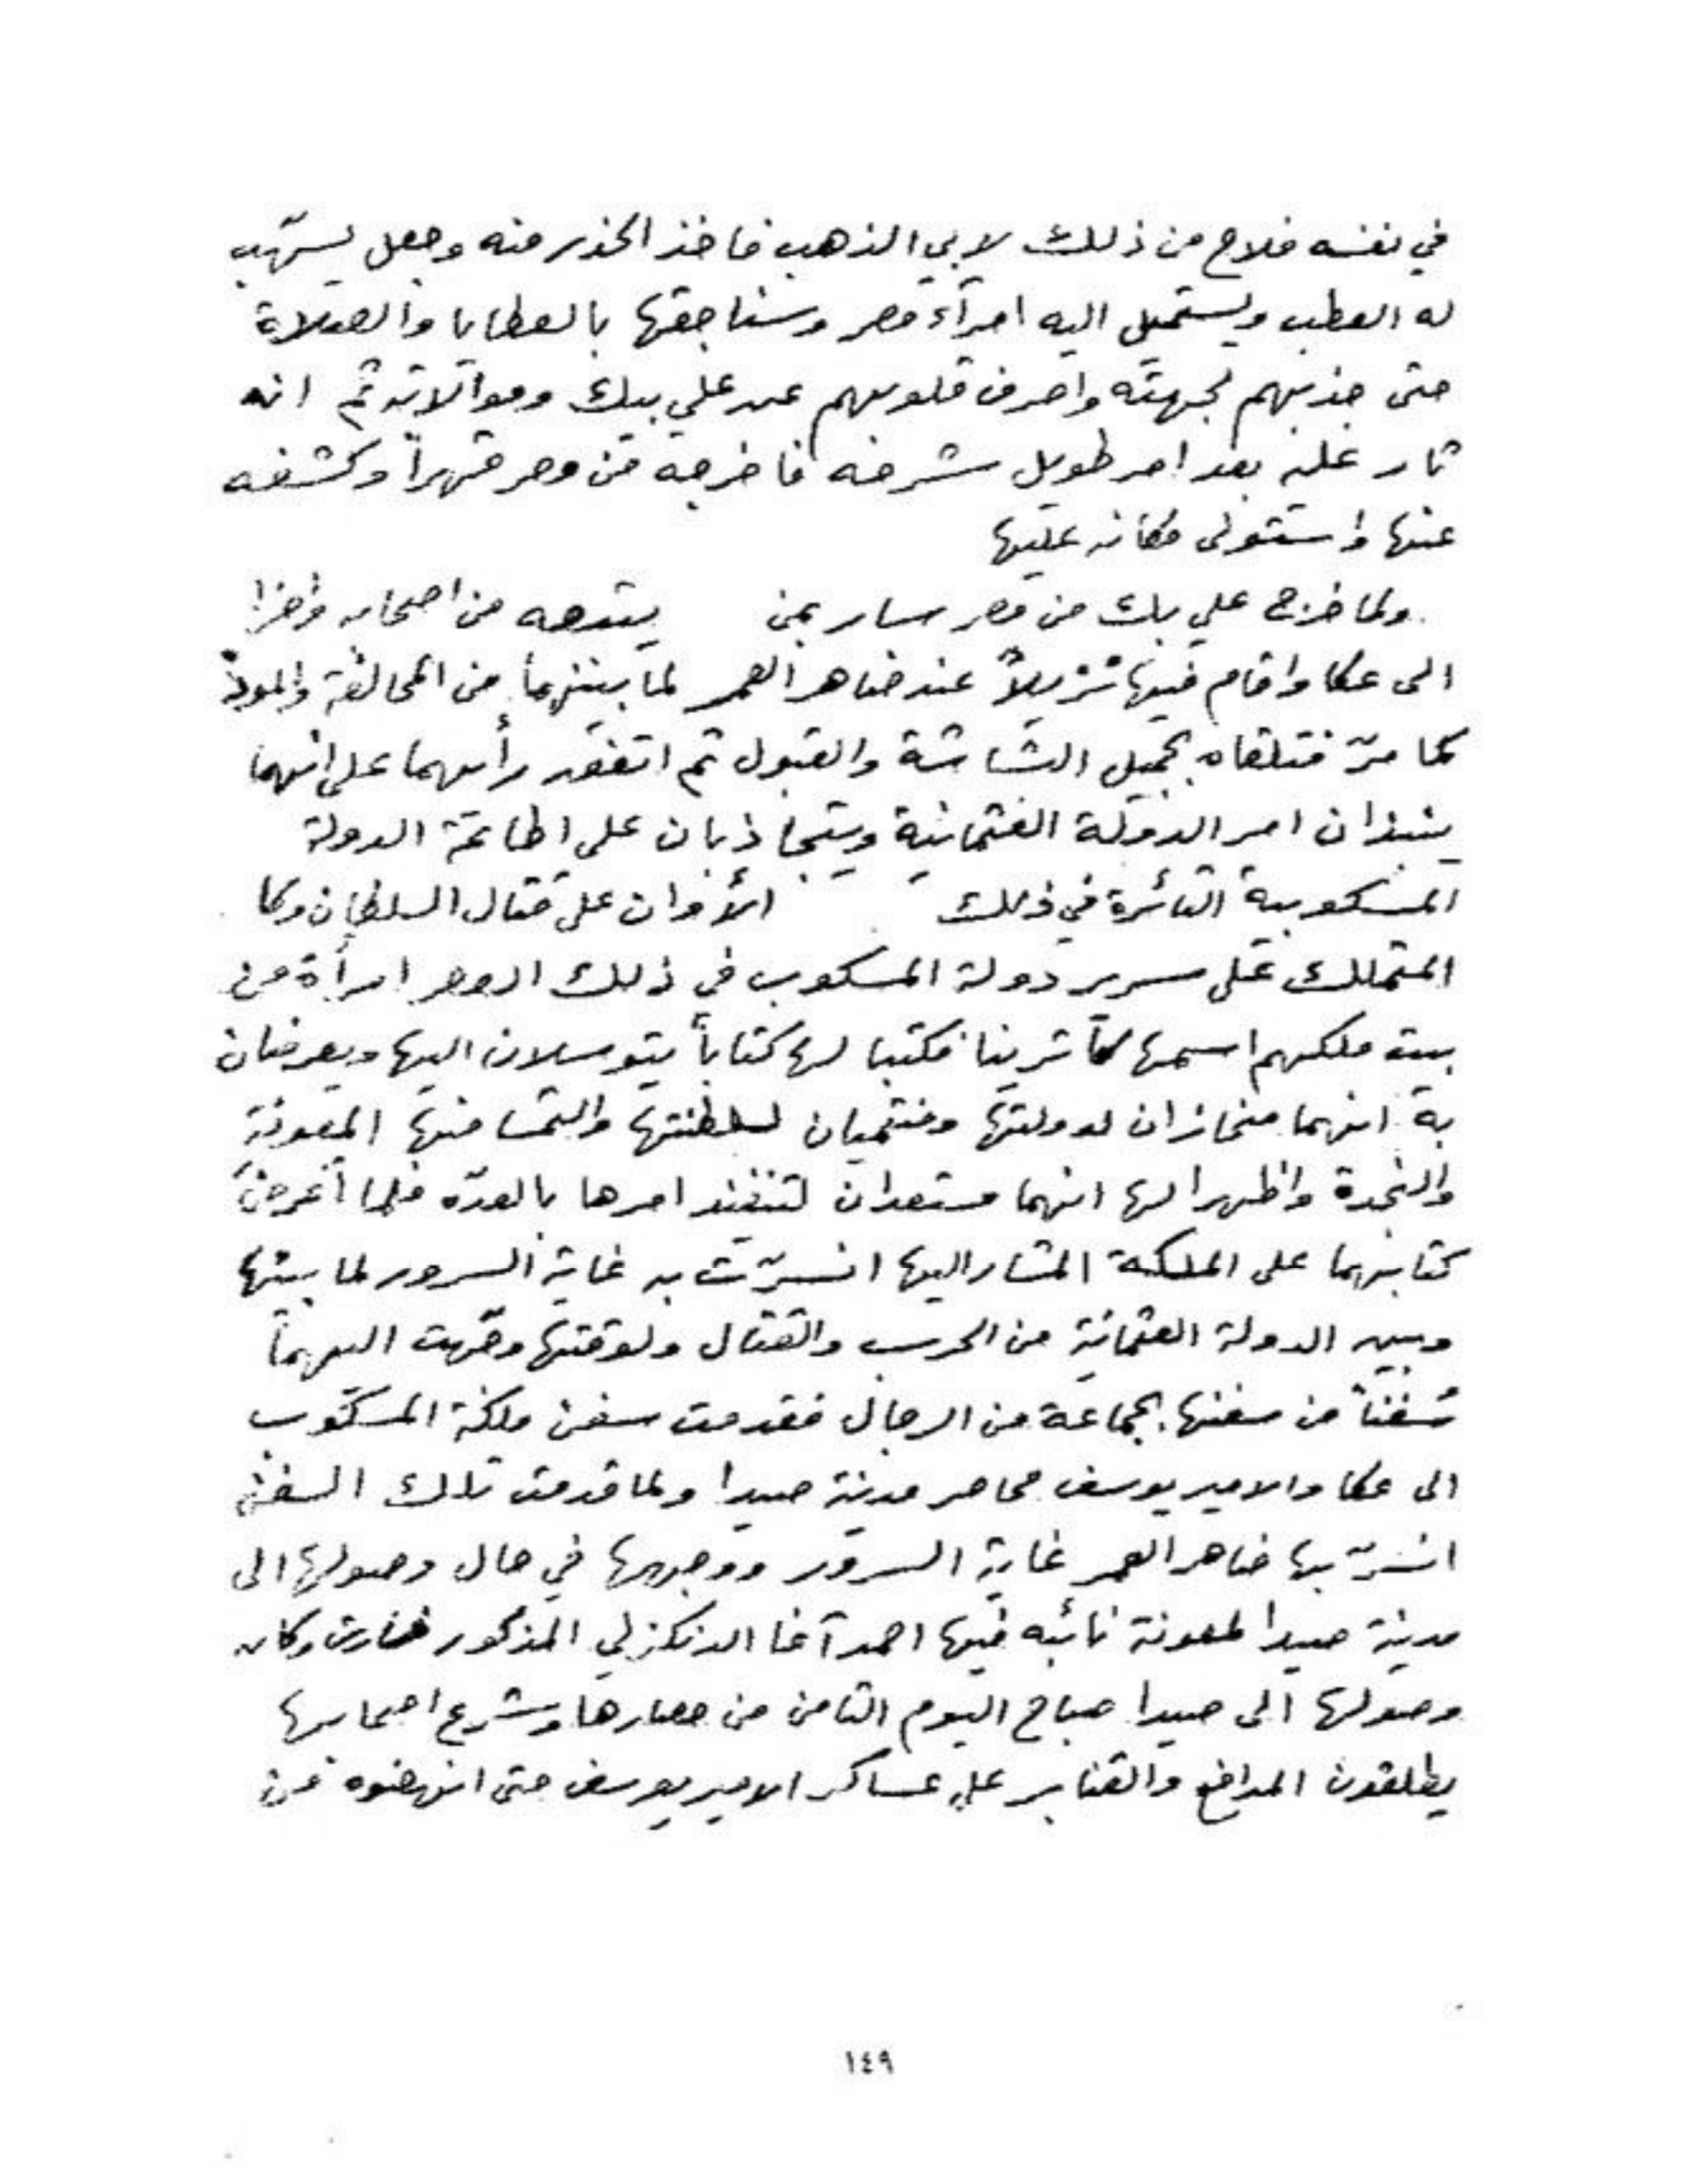 في نفسه فلاح من ذلك لابي الذهب فاخذ الحذر منه وجعل
له العطب ويستميل اليه امرآء مصر وسناجقها بالعطايا والصلاة
حتى جذبهم لجهته واصرف قلوبهم عن علي بيك وموالاته ثم انه
ثار عليه بعد امر طويل شرحه فاخرجه من مصر قهراً وكشفه
عنها واستولى مكانه عليها
ولما خرج علي بك من مصر سار بمن يتبعه من اصحابه
الى عكا واقام فيها نزيلاً عند ضاهر العمر لما بينهما من المحالفة
كما مرّ فتلقاه بجميل البشاشة والقبول ثم اتفقد رأيهما على انهما
ينبذان امر الدولة العثمانية ويتجاذبان على اطاعة الدولة
المسكوبية الثائرة في ذلك الأوان على قتال السلطان وكا
المتملك على سرير دولة المسكوب في ذلك العصر امرأة من
بيت ملكهم اسمها كاترينا فكتبا لها كتاباً يتوسلان اليها ويعرضان
به انهما منحازان لدولتها ومنتميان لسلطنتها والتمسا منها المعونة
والنجدة واظهرا لها انهما مستعدان لتنفيذ امرها بالعدّه فلما أعرض
كتابهما على الملكة المشار اليها انسرّت به غاية السرور لما بينها
وبين الدولة العثمانية من الحرب والقتال ولوقتها وجّهت اليهما
سفناً من سفنها بجماعة من الرجال فقدمت سفن ملكة المسكوب
الى عكا والامير يوسف محاصر مدينة صيدا ولما قدمت تلك السفن
انسرّ بها ضاهر العمر غاية السرور ووجهها في حال وصولها الى
مدينة صيدا لمعونة نائبه فيها احمد آغا الدنكزلي المذكور فسارت وكان
وصولها الى صيدا صباح اليوم الثامن من حصارها وشرع اصحابها
يطلقون المدافع والقنابر على عساكر الامير يوسف حتى انهضوه عن
١٤٩